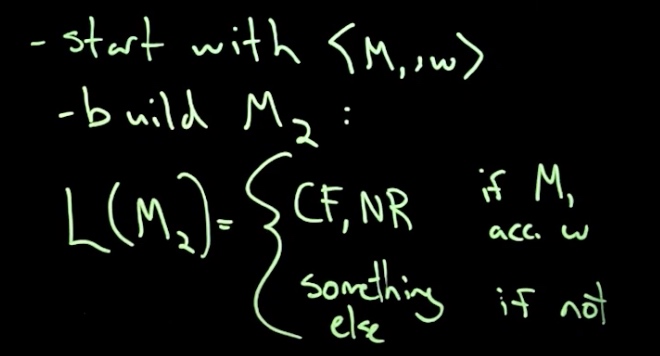 - start with ⟨M₁,w⟩
- build M₂ :
L(M₂) = { CF, NR if M₁ acc. w
something else if not